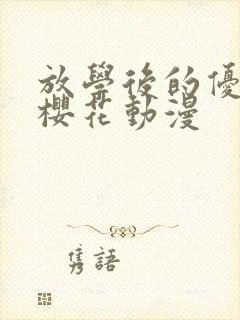 放學後的優
櫻花動漫
隽語